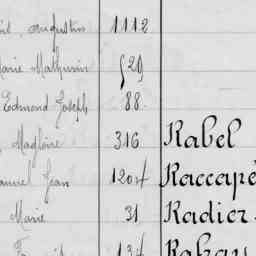 Augustin 1112
Marie Mathurin 529
Edmond Joseph 88
Magloire 316 Rabel
Jean 1204 Raccapé
Marie 31 Radier
134 Rahan